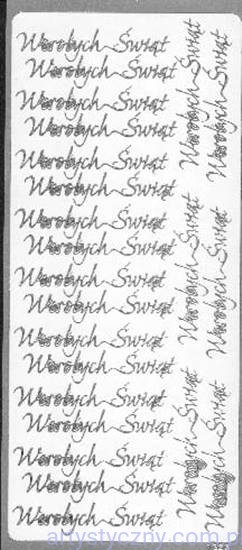 Wesołych Świąt
Wesołych Świąt
Wesołych Świąt
Wesołych Świąt
Wesołych Świąt
Wesołych Świąt
Wesołych Świąt
Wesołych Świąt
Wesołych Świąt
Wesołych Świąt
Wesołych Świąt
Wesołych Świąt
Wesołych Świąt
Wesołych Świąt
Wesołych Świąt
Wesołych Świąt
Wesołych Świąt
Wesołych Świąt
Wesołych Świąt
Wesołych Świąt
Wesołych Świąt
Wesołych Świąt
Wesołych Świąt
artystyczny.com.p